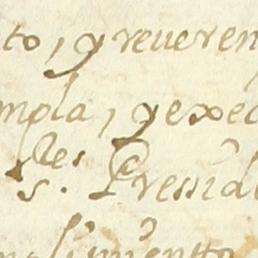 to, y reueren
mpla, y exec
les
s. Pressid
plimientto